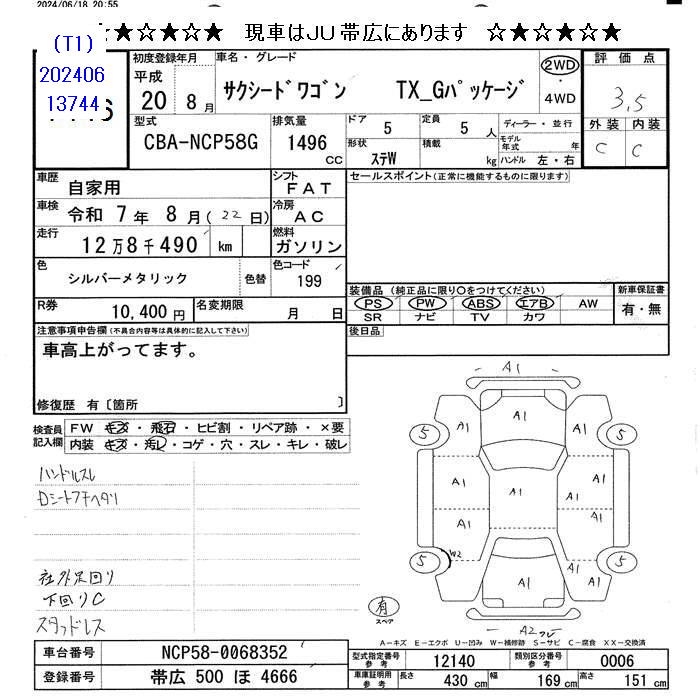 2024/06/18 20:55
☆★☆★☆★☆ 現車はJU帯広にあります ☆★☆★☆★☆
(T1)
202406
13744
初度登録年月
平成
20 8月
車名・グレード
サクシードワゴン TX_Gパッケージ
2WD
・
4WD
評価点
3.5
外装 内装
C C
型式
CBA-NCP58G
排気量
1496
CC
ドア 5
定員 5 人
形状 ステW
積載 kg
ディーラー・並行
モデル年式 年
ハンドル 左・右
車歴 自家用
シフト FAT
セールスポイント(正常に機能するものに限ります)
車検 令和 7年 8月(22日)
冷房 AC
走行 12万8千490 km
燃料 ガソリン
色 シルバーメタリック
色替
色コード 199
装備品 (純正品に限り○をつけてください)
PS PW ABS エアB AW
SR ナビ TV カワ
新車保証書
有・無
R券 10,400円
名変期限 月 日
後日品
注意事項申告欄(不具合内容等は具体的に記入して下さい)
車高上がってます。
修復歴 有〔箇所 〕
検査員記入欄
FW キズ・飛石・ヒビ割・リペア跡・×要
内装 キズ・汚レ・コゲ・穴・スレ・キレ・破レ
ハンドルスレ
Dシートフチヘタリ
社外足回り
下回りC
スタッドレス
A1
A1
5 A1 A1 5
A1 A1 A1
A1
A1 A1
5 W2 A1 A1 5
A1
有
スペア
A2 フレ
A-キズ E-エクボ U-凹み W-補修跡 S-サビ C-腐食 XX-交換済
車台番号 NCP58-0068352
登録番号 帯広 500 ほ 4666
型式指定番号 参考 12140
類別区分番号 参考 0006
車庫証明用 参考
長さ 430 cm
幅 169 cm
高さ 151 cm